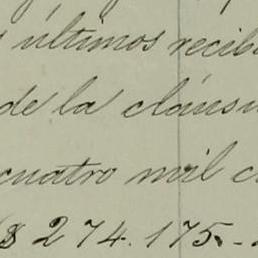 últimos recib
de la cláusu
cuatro mil c
($ 274.175.-